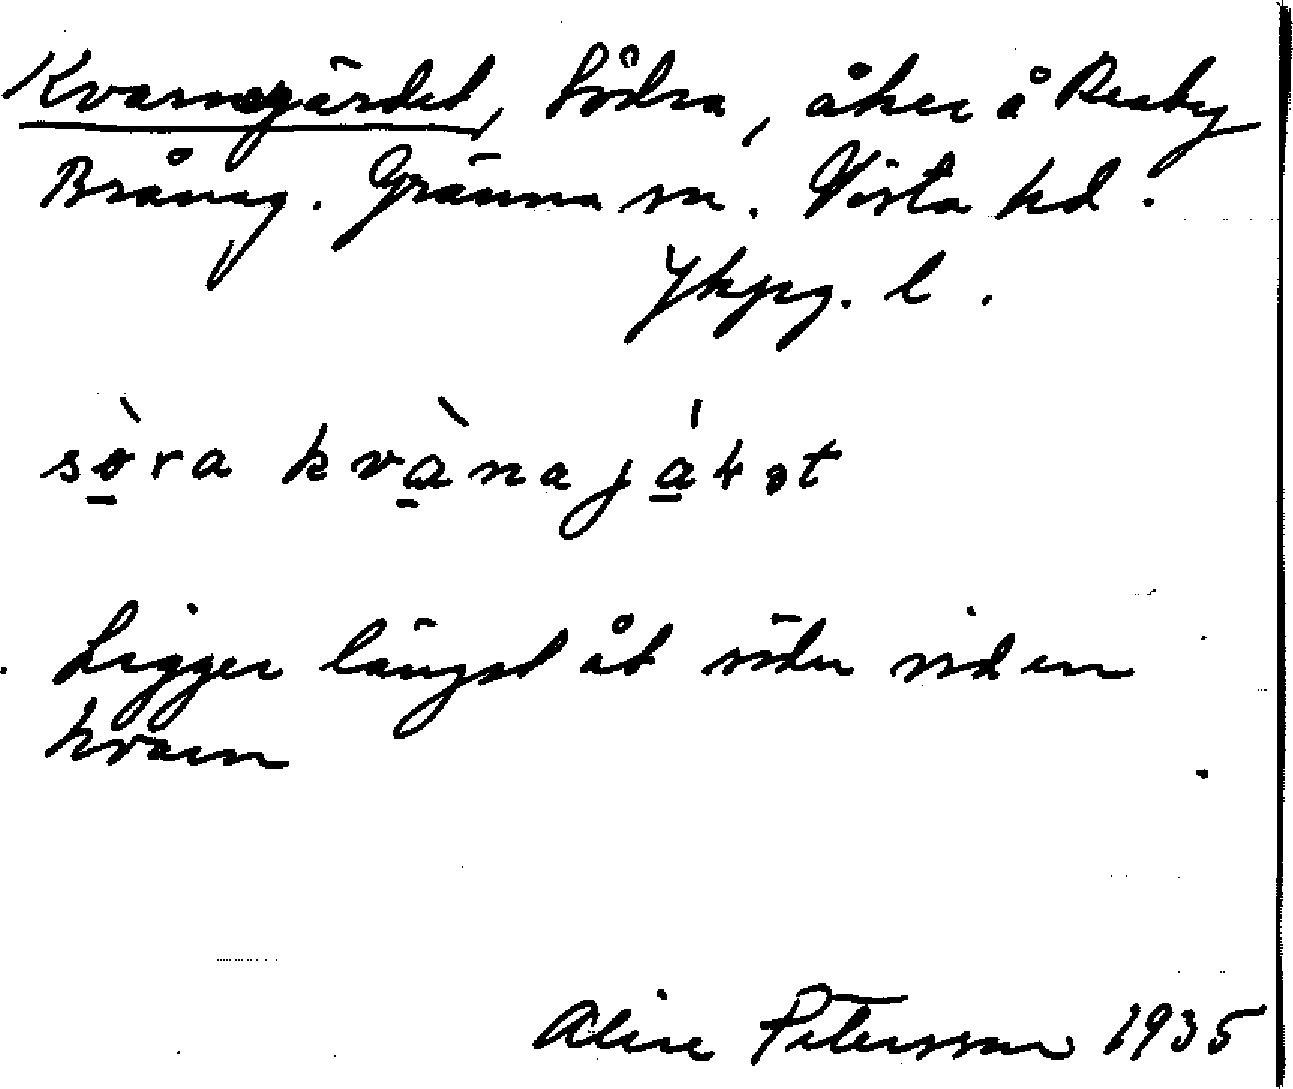 Kvarngärdet, Södra, åker å Reaby
Bråneg. Gränna sn. Vista hd.
Jkpg. l.
sö̀ra kvànajátət
Ligger längst åt söder vid en
kvarn
Aline Petersson 1935